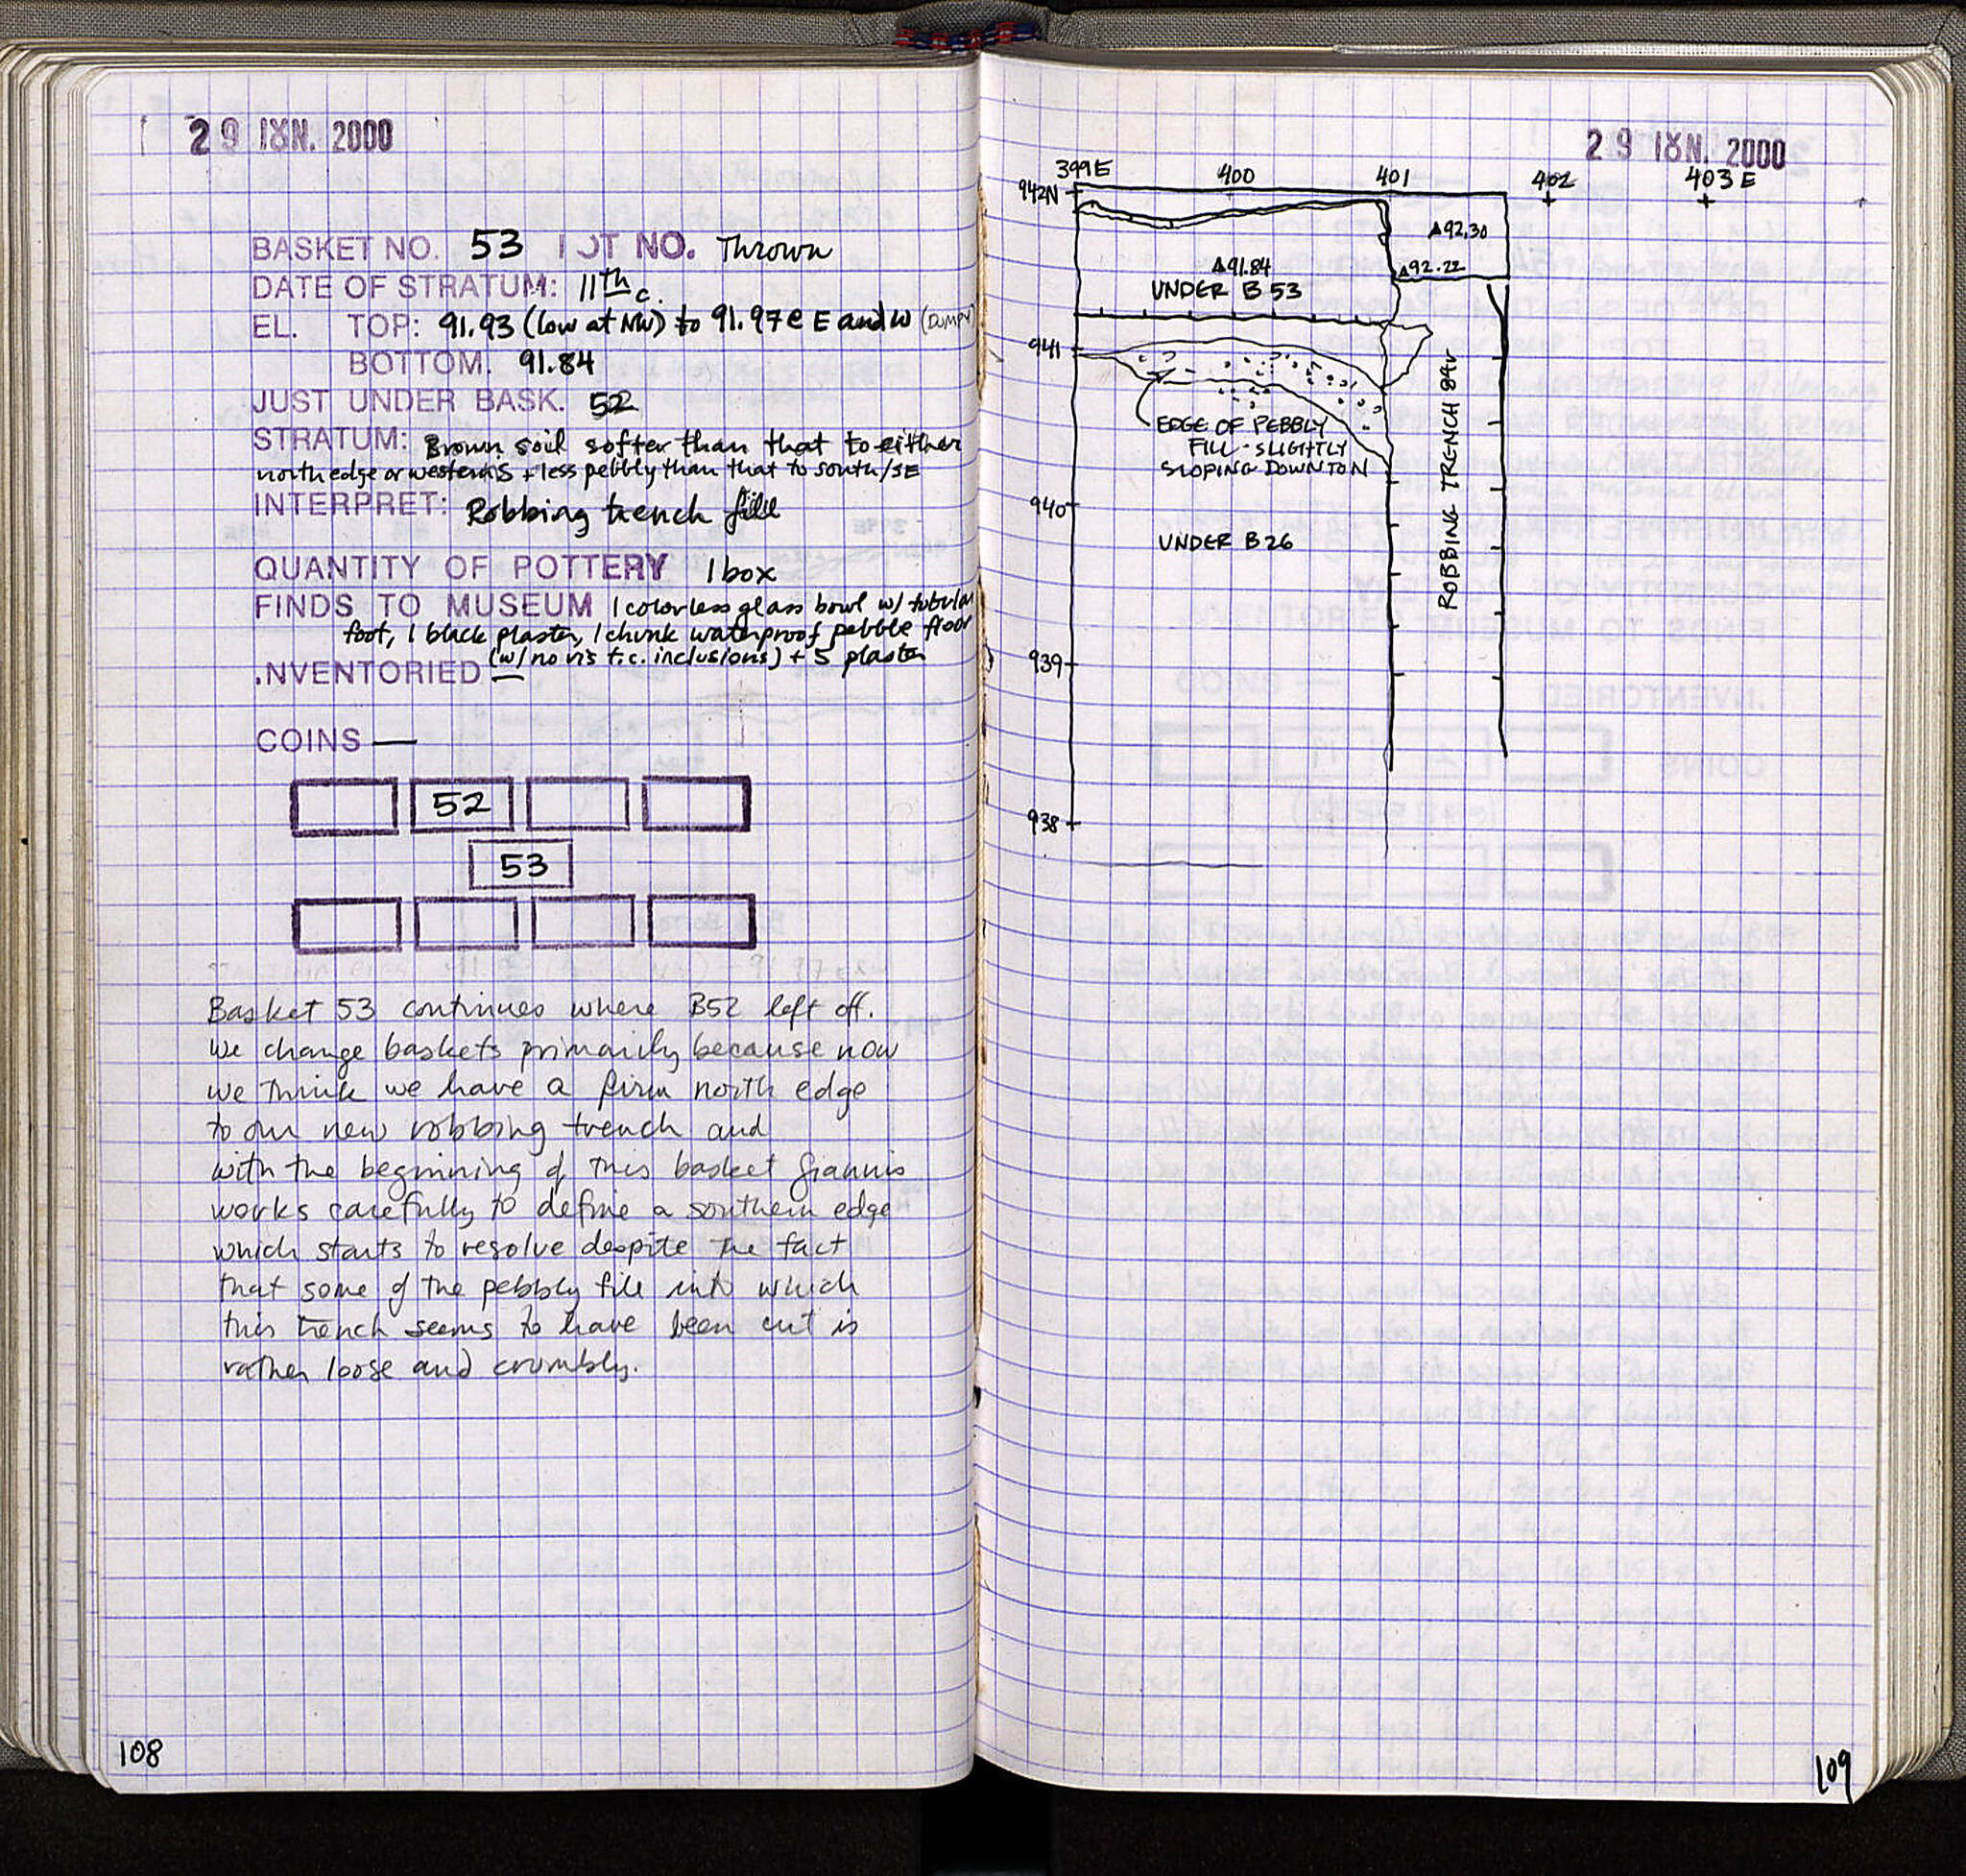 29 ΙΟΥΝ. 2000
BASKET NO. 53 LOT NO. Thrown
DATE OF STRATUM: 11th c.
EL. TOP: 91.93 (low at NW) to 91.97 @ E and W
BOTTOM. 91.84
JUST UNDER BASK. 52
STRATUM: Brown soil softer than that to either
north edge or western S + less pebbly than that to south/SE
INTERPRET: Robbing trench fill
QUANTITY OF POTTERY 1 box
FINDS TO MUSEUM 1 colorless glass bowl w/ tubular
foot, 1 black plaster, 1 chunk waterproof pebble floor
(w/ no vis t.c. inclusions) + 5 plaster
.NVENTORIED —
COINS —
52
53
Basket 53 continues where B52 left off.
We change baskets primarily because now
we think we have a firm north edge
to our new robbing trench and
with the beginning of this basket Giannis
works carefully to define a southern edge
which starts to resolve despite the fact
that some of the pebbly fill into which
this trench seems to have been cut is
rather loose and crumbly.
108
29 ΙΟΥΝ. 2000
399E 400 401 402 403 E
942N
▵92.30
▵91.84 ▵92.22
UNDER B 53
941
EDGE OF PEBBLY
FILL - SLIGHTLY
SLOPING DOWN TO N
ROBBING TRENCH 84v
940
UNDER B26
939
938
109